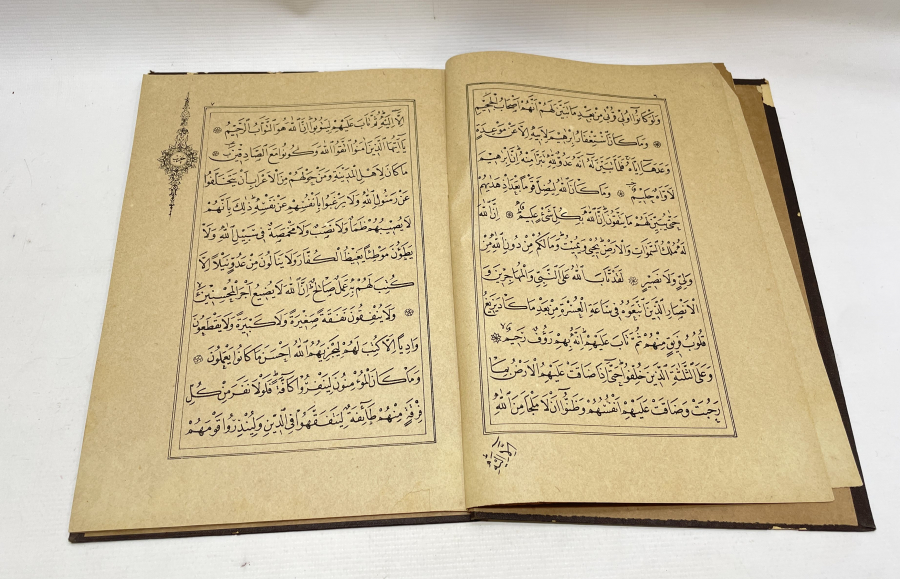 ٦
وَلَوْ كَانُوا أُولِي قُرْبىٰ مِنْ بَعْدِ مَا تَبَيَّنَ لَهُمْ أَنَّهُمْ أَصْحَابُ الْجَحِيمِ
وَمَا كَانَ اسْتِغْفَارُ إِبْرٰهِيمَ لِأَبِيهِ إِلَّا عَنْ مَوْعِدَةٍ
وَعَدَهَا إِيَّاهُ فَلَمَّا تَبَيَّنَ لَهُ أَنَّهُ عَدُوٌّ لِلّٰهِ تَبَرَّأَ مِنْهُ إِنَّ إِبْرٰهِيمَ
لَأَوَّاهٌ حَلِيمٌ وَمَا كَانَ اللّٰهُ لِيُضِلَّ قَوْمًا بَعْدَ إِذْ هَدٰيهُمْ
حَتّٰى يُبَيِّنَ لَهُمْ مَا يَتَّقُونَ إِنَّ اللّٰهَ بِكُلِّ شَيْءٍ عَلِيمٌ إِنَّ اللّٰهَ
لَهُ مُلْكُ السَّمٰوَاتِ وَالْأَرْضِ يُحْيِي وَيُمِيتُ وَمَا لَكُمْ مِنْ دُونِ اللّٰهِ مِنْ
وَلِيٍّ وَلَا نَصِيرٍ لَقَدْ تَابَ اللّٰهُ عَلَى النَّبِيِّ وَالْمُهَاجِرِينَ وَ
الْأَنْصَارِ الَّذِينَ اتَّبَعُوهُ فِي سَاعَةِ الْعُسْرَةِ مِنْ بَعْدِ مَا كَادَ يَزِيغُ
قُلُوبُ فَرِيقٍ مِنْهُمْ ثُمَّ تَابَ عَلَيْهِمْ إِنَّهُ بِهِمْ رَؤُفٌ رَحِيمٌ
وَعَلَى الثَّلٰثَةِ الَّذِينَ خُلِّفُوا حَتّٰى إِذَا ضَاقَتْ عَلَيْهِمُ الْأَرْضُ بِمَا
رَحُبَتْ وَضَاقَتْ عَلَيْهِمْ أَنْفُسُهُمْ وَظَنُّوا أَنْ لَا مَلْجَأَ مِنَ اللّٰهِ
٧
إِلَّا إِلَيْهِ ثُمَّ تَابَ عَلَيْهِمْ لِيَتُوبُوا إِنَّ اللّٰهَ هُوَ التَّوَّابُ الرَّحِيمُ
يَا أَيُّهَا الَّذِينَ آمَنُوا اتَّقُوا اللّٰهَ وَكُونُوا مَعَ الصَّادِقِينَ
مَا كَانَ لِأَهْلِ الْمَدِينَةِ وَمَنْ حَوْلَهُمْ مِنَ الْأَعْرَابِ أَنْ يَتَخَلَّفُوا
عَنْ رَسُولِ اللّٰهِ وَلَا يَرْغَبُوا بِأَنْفُسِهِمْ عَنْ نَفْسِهِ ذٰلِكَ بِأَنَّهُمْ
لَا يُصِيبُهُمْ ظَمَأٌ وَلَا نَصَبٌ وَلَا مَخْمَصَةٌ فِي سَبِيلِ اللّٰهِ وَلَا
يَطَئُونَ مَوْطِئًا يَغِيظُ الْكُفَّارَ وَلَا يَنَالُونَ مِنْ عَدُوٍّ نَيْلًا إِلَّا
كُتِبَ لَهُمْ بِهِ عَمَلٌ صَالِحٌ إِنَّ اللّٰهَ لَا يُضِيعُ أَجْرَ الْمُحْسِنِينَ
وَلَا يُنْفِقُونَ نَفَقَةً صَغِيرَةً وَلَا كَبِيرَةً وَلَا يَقْطَعُونَ
وَادِيًا إِلَّا كُتِبَ لَهُمْ لِيَجْزِيَهُمُ اللّٰهُ أَحْسَنَ مَا كَانُوا يَعْمَلُونَ
وَمَا كَانَ الْمُؤْمِنُونَ لِيَنْفِرُوا كَافَّةً فَلَوْلَا نَفَرَ مِنْ كُلِّ
فِرْقَةٍ مِنْهُمْ طَائِفَةٌ لِيَتَفَقَّهُوا فِي الدِّينِ وَلِيُنْذِرُوا قَوْمَهُمْ